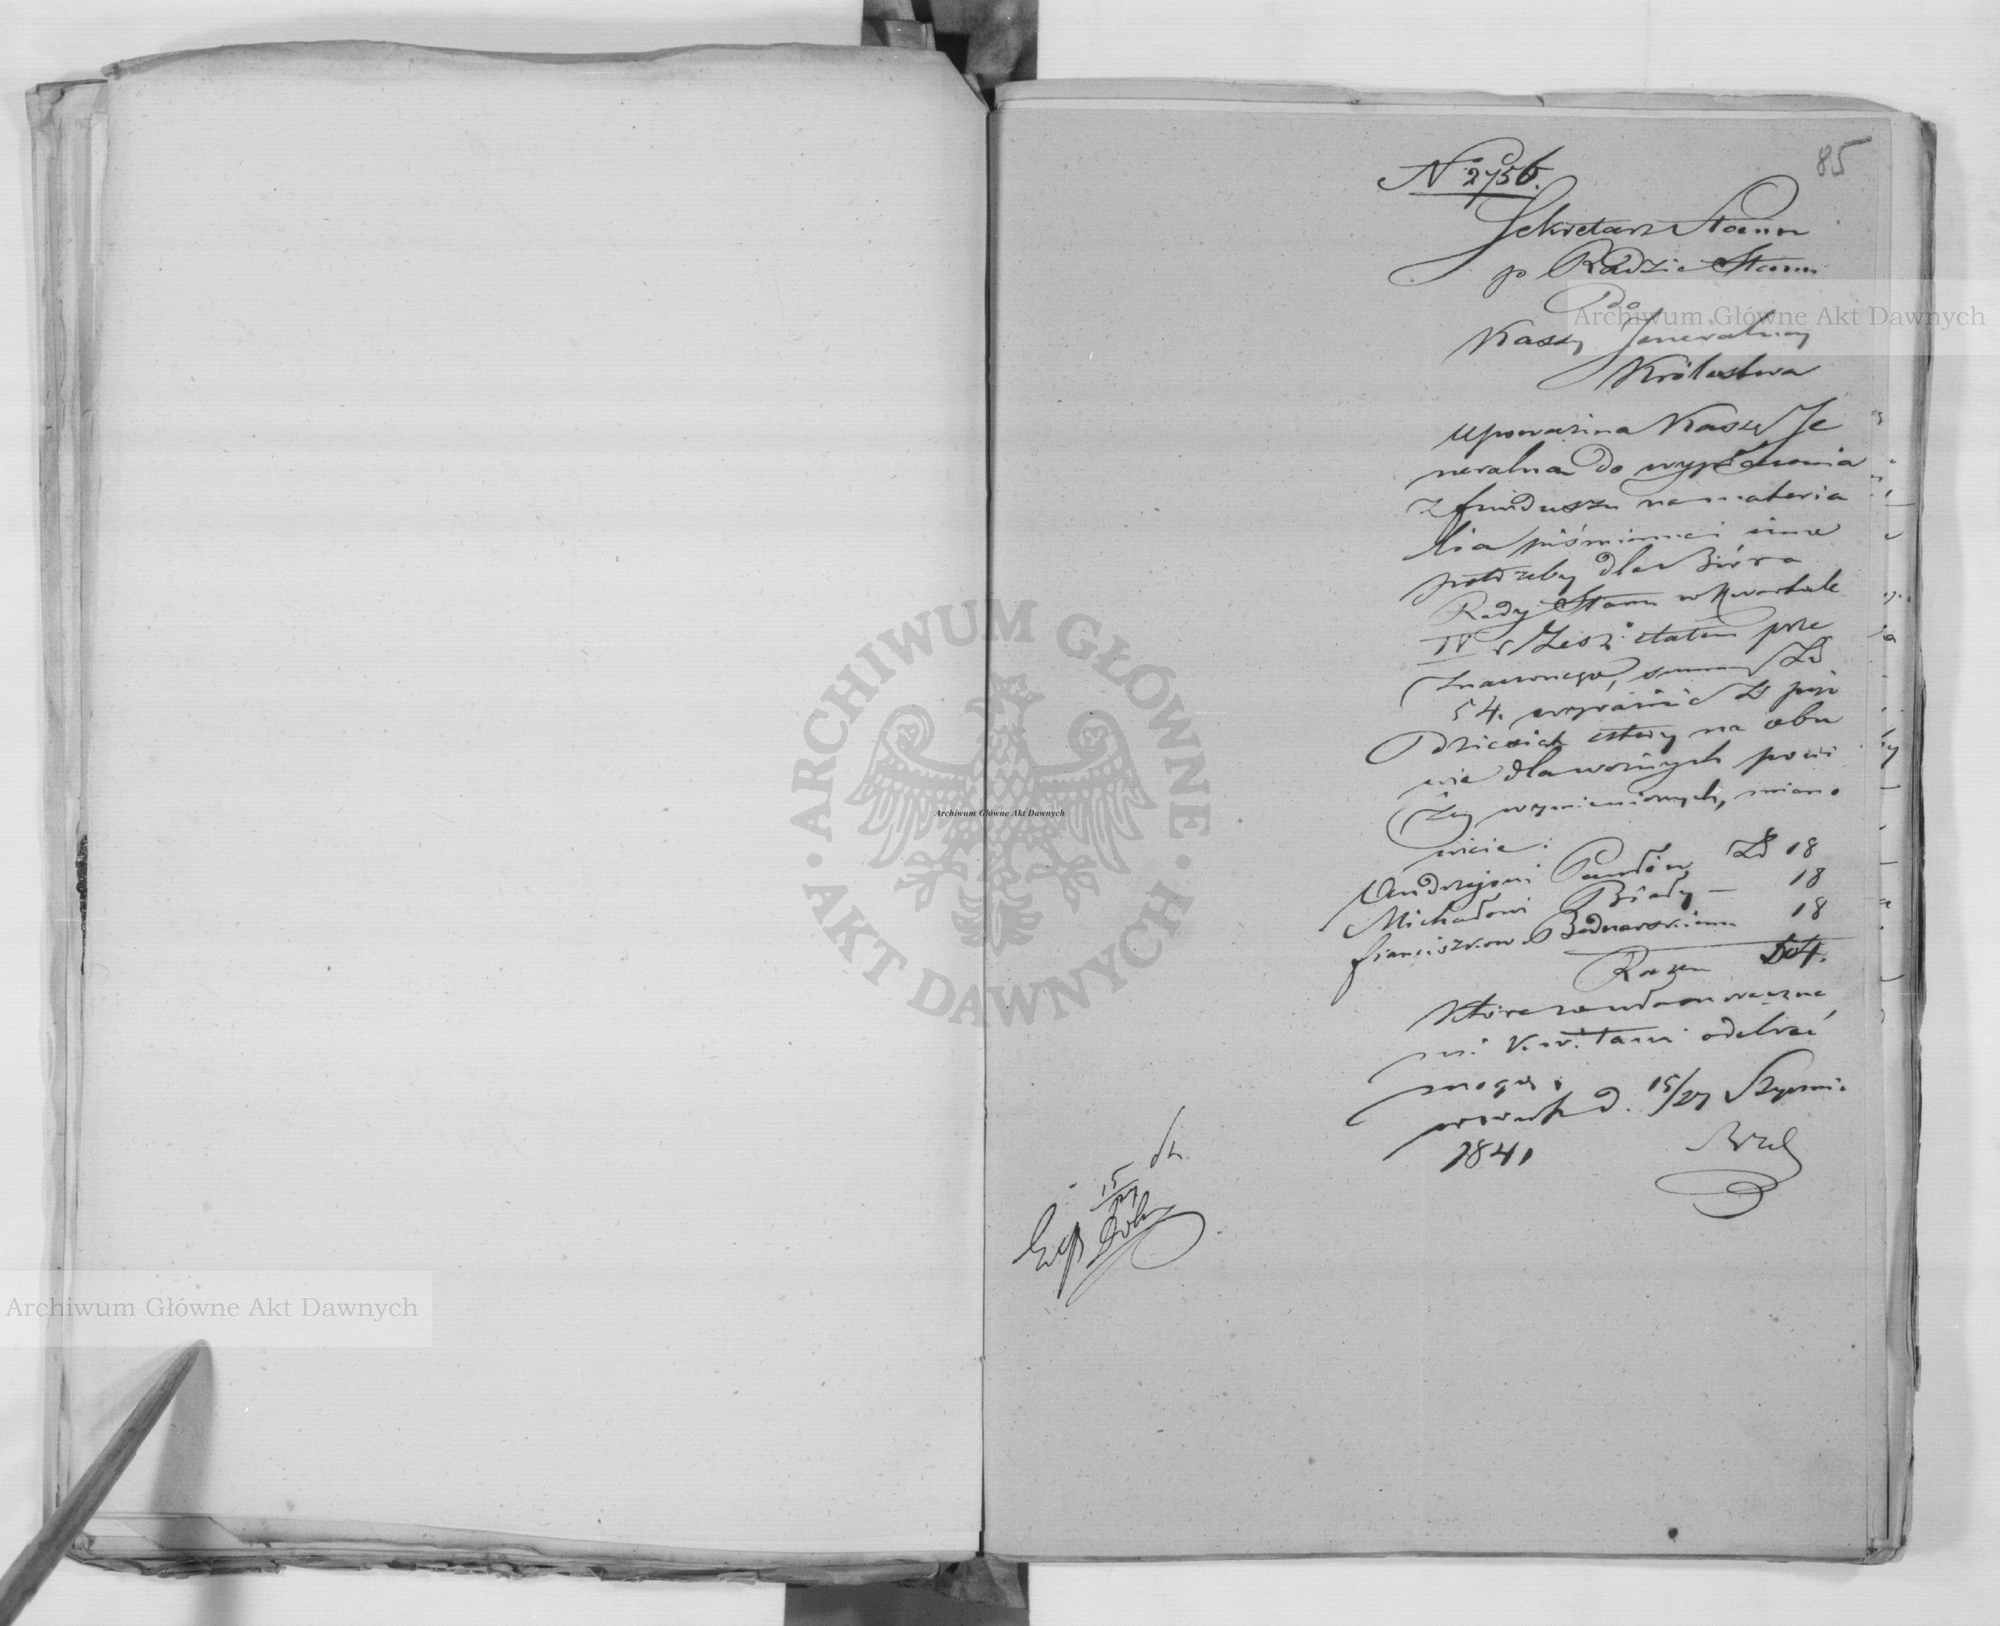 85
N 2756.
Sekretarz Stanu
p Radzie Stanu
Do
Kassy Jeneralney
Królestwa
Upoważnia Kassę Je
neralną do wypłacenia
z funduszu na materia
lia piśmienne i inne
potrzeby dla Bióra
Rady Stanu w Kwartale
IV r. etatem prze
znaczonego, summę Zł
54. wyraźnie Zł pięć
dziesiąt cztery na obu
wie dla woźnych poni
żey wymienionych, miano
wicie:
Andrzejowi Pawłów Zł 18
Michałowi Biały — 18
Franciszkowi Bednarskiemu 18
Razem 54.
które za własnoręczne
mi kwitami odebrać
mogą.
w Warsz d. 15/27 Stycznia
1841
15/27
Archiwum Główne Akt Dawnych
Archiwum Główne Akt Dawnych
Archiwum Główne Akt Dawnych
ARCHIWUM GŁÓWNE · AKT DAWNYCH ·